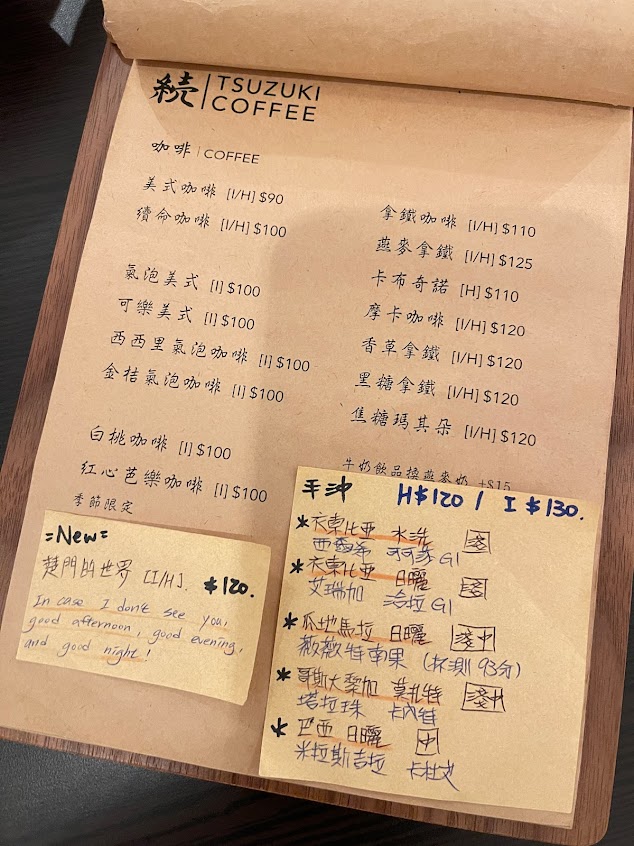 続 TSUZUKI
COFFEE
咖啡 | COFFEE
美式咖啡 [I/H] $90
續命咖啡 [I/H] $100
氣泡美式 [I] $100
可樂美式 [I] $100
西西里氣泡咖啡 [I] $100
金桔氣泡咖啡 [I] $100
白桃咖啡 [I] $100
紅心芭樂咖啡 [I] $100
季節限定
拿鐵咖啡 [I/H] $110
燕麥拿鐵 [I/H] $125
卡布奇諾 [H] $110
摩卡咖啡 [I/H] $120
香草拿鐵 [I/H] $120
黑糖拿鐵 [I/H] $120
焦糖瑪其朵 [I/H] $120
牛奶飲品換燕麥奶 +$15
=New=
楚門的世界 [I/H]. $120.
In case I don't see you,
good afternoon, good evening,
and good night!
手沖 H$120 / I $130.
*衣索比亞 水洗 淺
西達希 G1
*衣索比亞 日曬 淺
艾瑞加 洛拉 G1
*瓜地馬拉 日曬 淺中
薇薇特南果 (杯測93分)
*哥斯大黎加 莫札特 淺中
塔拉珠 卡內特
*巴西 日曬 中
米拉斯吉拉 卡杜艾